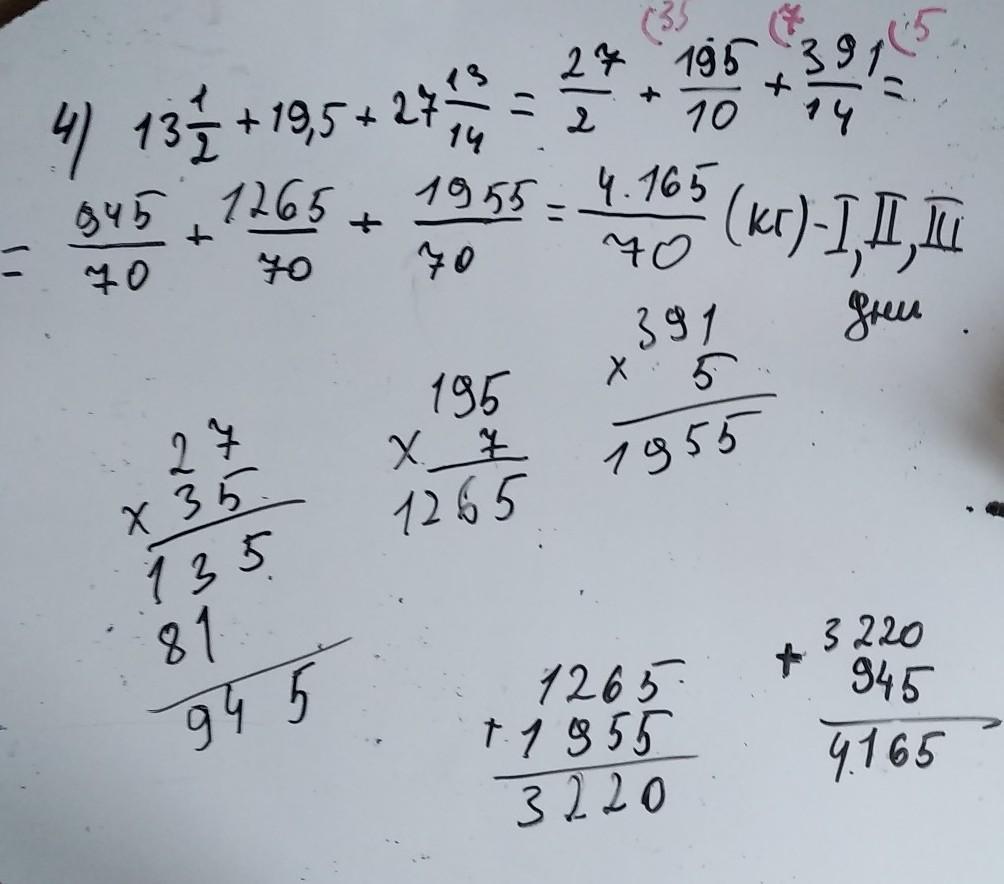 (35 (7 (5
4) 13 1/2 + 19,5 + 27 13/14 = 27/2 + 195/10 + 391/14 =
= 945/70 + 1265/70 + 1955/70 = 4.165/70 (кг) - I, II, III
дни
391
× 5
1955
195
× 7
1265
27
× 35
135
81
945
1265
+ 1955
3220
+ 3220
945
4.165